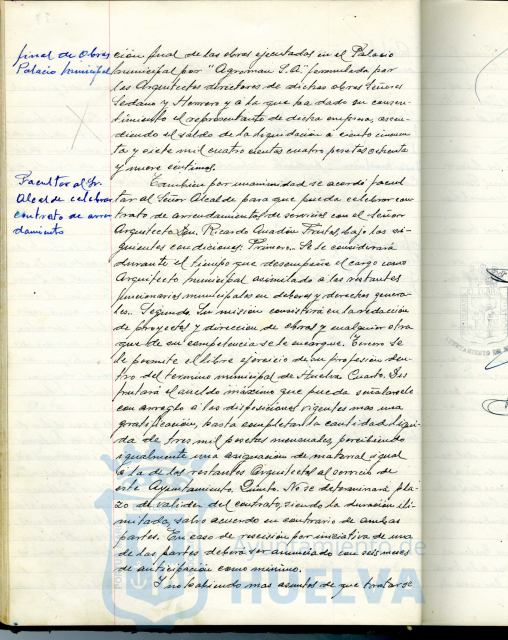 final de Obras
Palacio Municipal
Facultar al Sr.
Alcalde celebrar
contrato de arren
damiento
ción final de las obras ejecutadas en el Palacio
Municipal por "Agroman S.A." formulada por
los Arquitectos directores de dichas obras Señores
Sedano y Herrero y a la que ha dado su consen-
timiento el representante de dicha empresa, ascen-
diendo el saldo de la liquidación a ciento cincuen
ta y siete mil cuatrocientas cuatro pesetas ochenta
y nueve centimos.
Tambien por unanimidad se acordó facul
tar al Señor Alcalde para que pueda celebrar con
trato de arrendamiento de servicios con el Señor
Arquitecto Don Ricardo Anadón Frutos, bajo las si-
guientes condiciones. Primero.- Se le considerará
durante el tiempo que desempeñe el cargo como
Arquitecto Municipal asimilado a los restantes
funcionarios municipales en deberes y derechos genera-
les.. Segundo. Su misión consistirá en la redacción
de proyectos y dirección de obras y cualquier otra
que de su competencia se le encargue. Tercero se
le permite el libre ejercicio de su profesión den-
tro del termino municipal de Huelva Cuarto. Dis
frutará el sueldo máximo que pueda señalarsele
con arreglo a las disposiciones vigentes mas una
gratificación, hasta completar la cantidad líqui-
da de tres mil pesetas mensuales, percibiendo
igualmente una asignación de material igual
a la de los restantes Arquitectos al servicio de
este Ayuntamiento. Quinto. No se determinará pla-
zo de validez del contrato, siendo la duración ili-
mitada, salvo acuerdo en contrario de ambas
partes. En caso de rescisión por iniciativa de una
de las partes deberá ser anunciado con seis meses
de anticipación como mínimo.
Y no habiendo mas asuntos de que tratarse
Ayuntamiento de
HUELVA